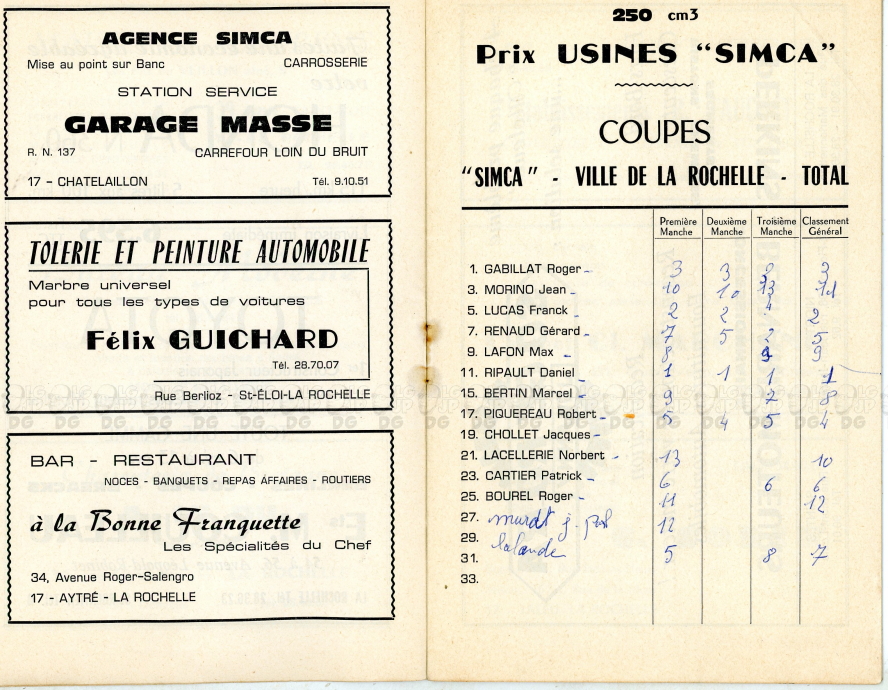 AGENCE SIMCA
Mise au point sur Banc CARROSSERIE
STATION SERVICE
GARAGE MASSE
R. N. 137 CARREFOUR LOIN DU BRUIT
17 - CHATELAILLON Tél. 9.10.51
TOLERIE ET PEINTURE AUTOMOBILE
Marbre universel
pour tous les types de voitures
Félix GUICHARD
Tél. 28.70.07
Rue Berlioz - St-ÉLOI-LA ROCHELLE
BAR - RESTAURANT
NOCES - BANQUETS - REPAS AFFAIRES - ROUTIERS
à la Bonne Franquette
Les Spécialités du Chef
34, Avenue Roger-Salengro
17 - AYTRÉ - LA ROCHELLE
250 cm3
Prix USINES "SIMCA"
COUPES
"SIMCA" - VILLE DE LA ROCHELLE - TOTAL
Première Manche Deuxième Manche Troisième Manche Classement Général
1. GABILLAT Roger 3 3 3
3. MORINO Jean 10 10 13
5. LUCAS Franck 2 2 4 2
7. RENAUD Gérard 7 5 2 5
9. LAFON Max 8 9 9
11. RIPAULT Daniel 1 1 1 1
15. BERTIN Marcel 9 7 8
17. PIQUEREAU Robert 5 4 5 4
19. CHOLLET Jacques
21. LACELLERIE Norbert 13 10
23. CARTIER Patrick 6 6 6
25. BOUREL Roger 11 12
27. 12
29.
31. Lalande 5 8 7
33.